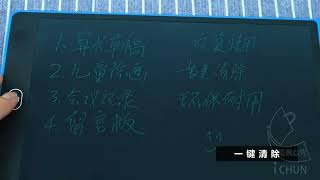 1.算式草稿 反复使用
2.儿童绘画 一键清除
3.会议记录 环保耐用
4.留言板
一键清除
iCHUN